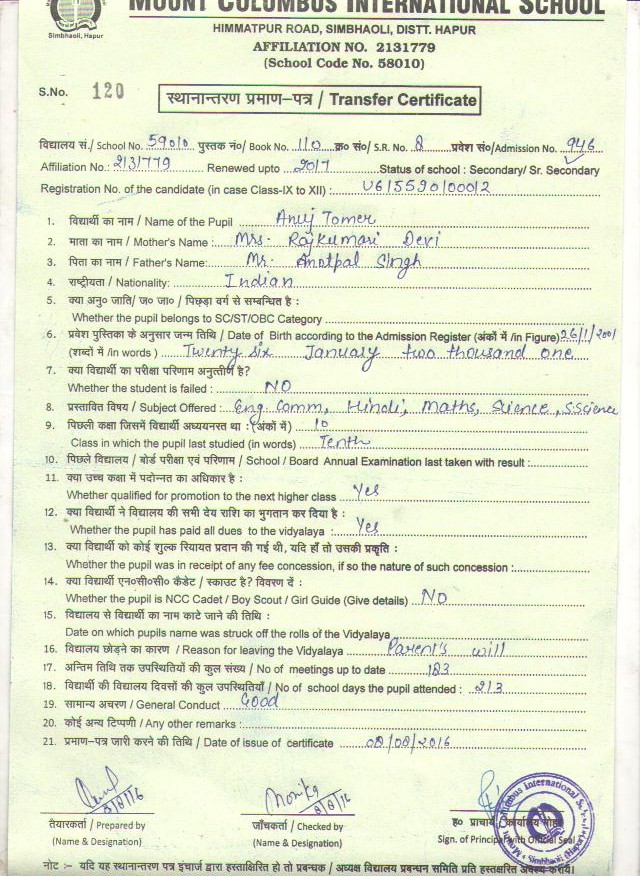 MOUNT COLUMBUS INTERNATIONAL SCHOOL
Simbhaoli, Hapur
HIMMATPUR ROAD, SIMBHAOLI, DISTT. HAPUR
AFFILIATION NO. 2131779
(School Code No. 58010)
S.No. 120
स्थानान्तरण प्रमाण–पत्र / Transfer Certificate
विद्यालय सं./ School No. 59010 पुस्तक नं०/ Book No. 110 क्र० सं०/ S.R. No. 8 प्रवेश सं०/Admission No. 946
Affiliation No.: 2131779 Renewed upto 2017 Status of school : Secondary/ Sr. Secondary
Registration No. of the candidate (in case Class-IX to XII) : U6/5590/0002
1. विद्यार्थी का नाम / Name of the Pupil Anuj Tomer
2. माता का नाम / Mother's Name : Mrs. Rajkumari Devi
3. पिता का नाम / Father's Name: Mr. Anotpal Singh
4. राष्ट्रीयता / Nationality: Indian
5. क्या अनु० जाति/ ज० जा० / पिछड़ा वर्ग से सम्बन्धित है :
Whether the pupil belongs to SC/ST/OBC Category
6. प्रवेश पुस्तिका के अनुसार जन्म तिथि / Date of Birth according to the Admission Register (अंकों में /in Figure) 26/1/2001
(शब्दों में /in words) Twenty six January two thousand one
7. क्या विद्यार्थी का परीक्षा परिणाम अनुत्तीर्ण है?
Whether the student is failed : NO
8. प्रस्तावित विषय / Subject Offered : Eng Comm, Hindi, Maths, Science, S.Science
9. पिछली कक्षा जिसमें विद्यार्थी अध्ययनरत था : (अंकों में) 10
Class in which the pupil last studied (in words) Tenth
10. पिछले विद्यालय / बोर्ड परीक्षा एवं परिणाम / School / Board Annual Examination last taken with result :
11. क्या उच्च कक्षा में पदोन्नत का अधिकार है :
Whether qualified for promotion to the next higher class Yes
12. क्या विद्यार्थी ने विद्यालय की सभी देय राशि का भुगतान कर दिया है :
Whether the pupil has paid all dues to the vidyalaya : Yes
13. क्या विद्यार्थी को कोई शुल्क रियायत प्रदान की गई थी, यदि हाँ तो उसकी प्रकृति :
Whether the pupil was in receipt of any fee concession, if so the nature of such concession :
14. क्या विद्यार्थी एन०सी०सी० कैडेट / स्काउट है? विवरण दें :
Whether the pupil is NCC Cadet / Boy Scout / Girl Guide (Give details) NO
15. विद्यालय से विद्यार्थी का नाम काटे जाने की तिथि :
Date on which pupils name was struck off the rolls of the Vidyalaya
16. विद्यालय छोड़ने का कारण / Reason for leaving the Vidyalaya Parent's will
17. अन्तिम तिथि तक उपस्थितियों की कुल संख्या / No of meetings up to date 183
18. विद्यार्थी की विद्यालय दिवसों की कुल उपस्थितियाँ / No of school days the pupil attended : 213
19. सामान्य अचरण / General Conduct Good
20. कोई अन्य टिप्पणी / Any other remarks :
21. प्रमाण-पत्र जारी करने की तिथि / Date of issue of certificate 08/08/2016
8/8/16 Monika 8/8/16
तैयारकर्ता / Prepared by जाँचकर्ता / Checked by ह० प्राचार्य, कार्यालय मोहर
(Name & Designation) (Name & Designation) Sign. of Principal with Official Seal
Mount Columbus International School Simbhaoli (Hapur)
नोट :– यदि यह स्थानान्तरण पत्र इंचार्ज द्वारा हस्ताक्षरित हो तो प्रबन्धक / अध्यक्ष विद्यालय प्रबन्धन समिति प्रति हस्तक्षरित अवश्य करायें।